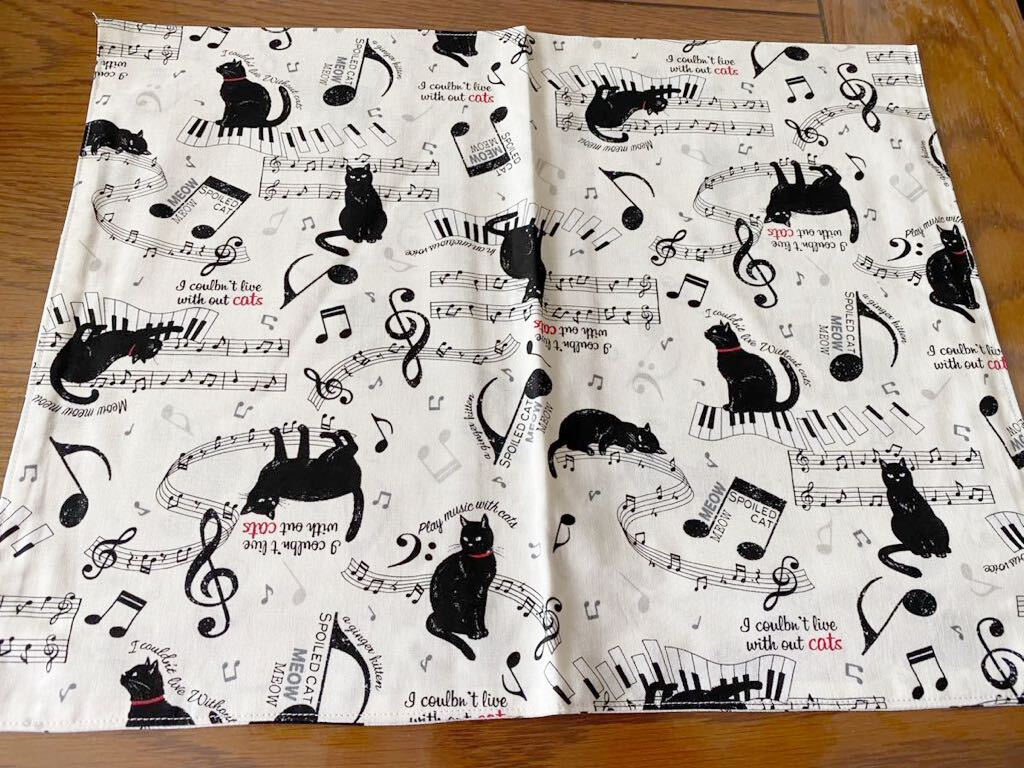 I couldn't live Without cats
SPOILED CAT
MEOW
MEOW
a ginger kitten
I coulbn't live
with out cats
I coulbn't live
with out cats
Meow meow meow
SPOILED CAT
MEOW
MEOW
MEOW
MEOW
SPOILED
CAT
I coulbn't live
with out cats
Play music with
In cantuctuous voice
I coulbn't live
with out cats
I coulbn't live
with out cats
I couldn't live Without cats
SPOILED CAT
MEOW
MEOW
a ginger kitten
I coulbn't live
with out cats
Meow meow meow
a ginger kitten
SPOILED CAT
MEOW
MEOW
Play music with cats
I coulbn't live
with out cats
MEOW
MEOW
SPOILED
CAT
I coulbn't live
with out cats
I couldn't live Without
SPOILED CAT
MEOW
MEOW
a ginger kitten
I coulbn't live
with out cats